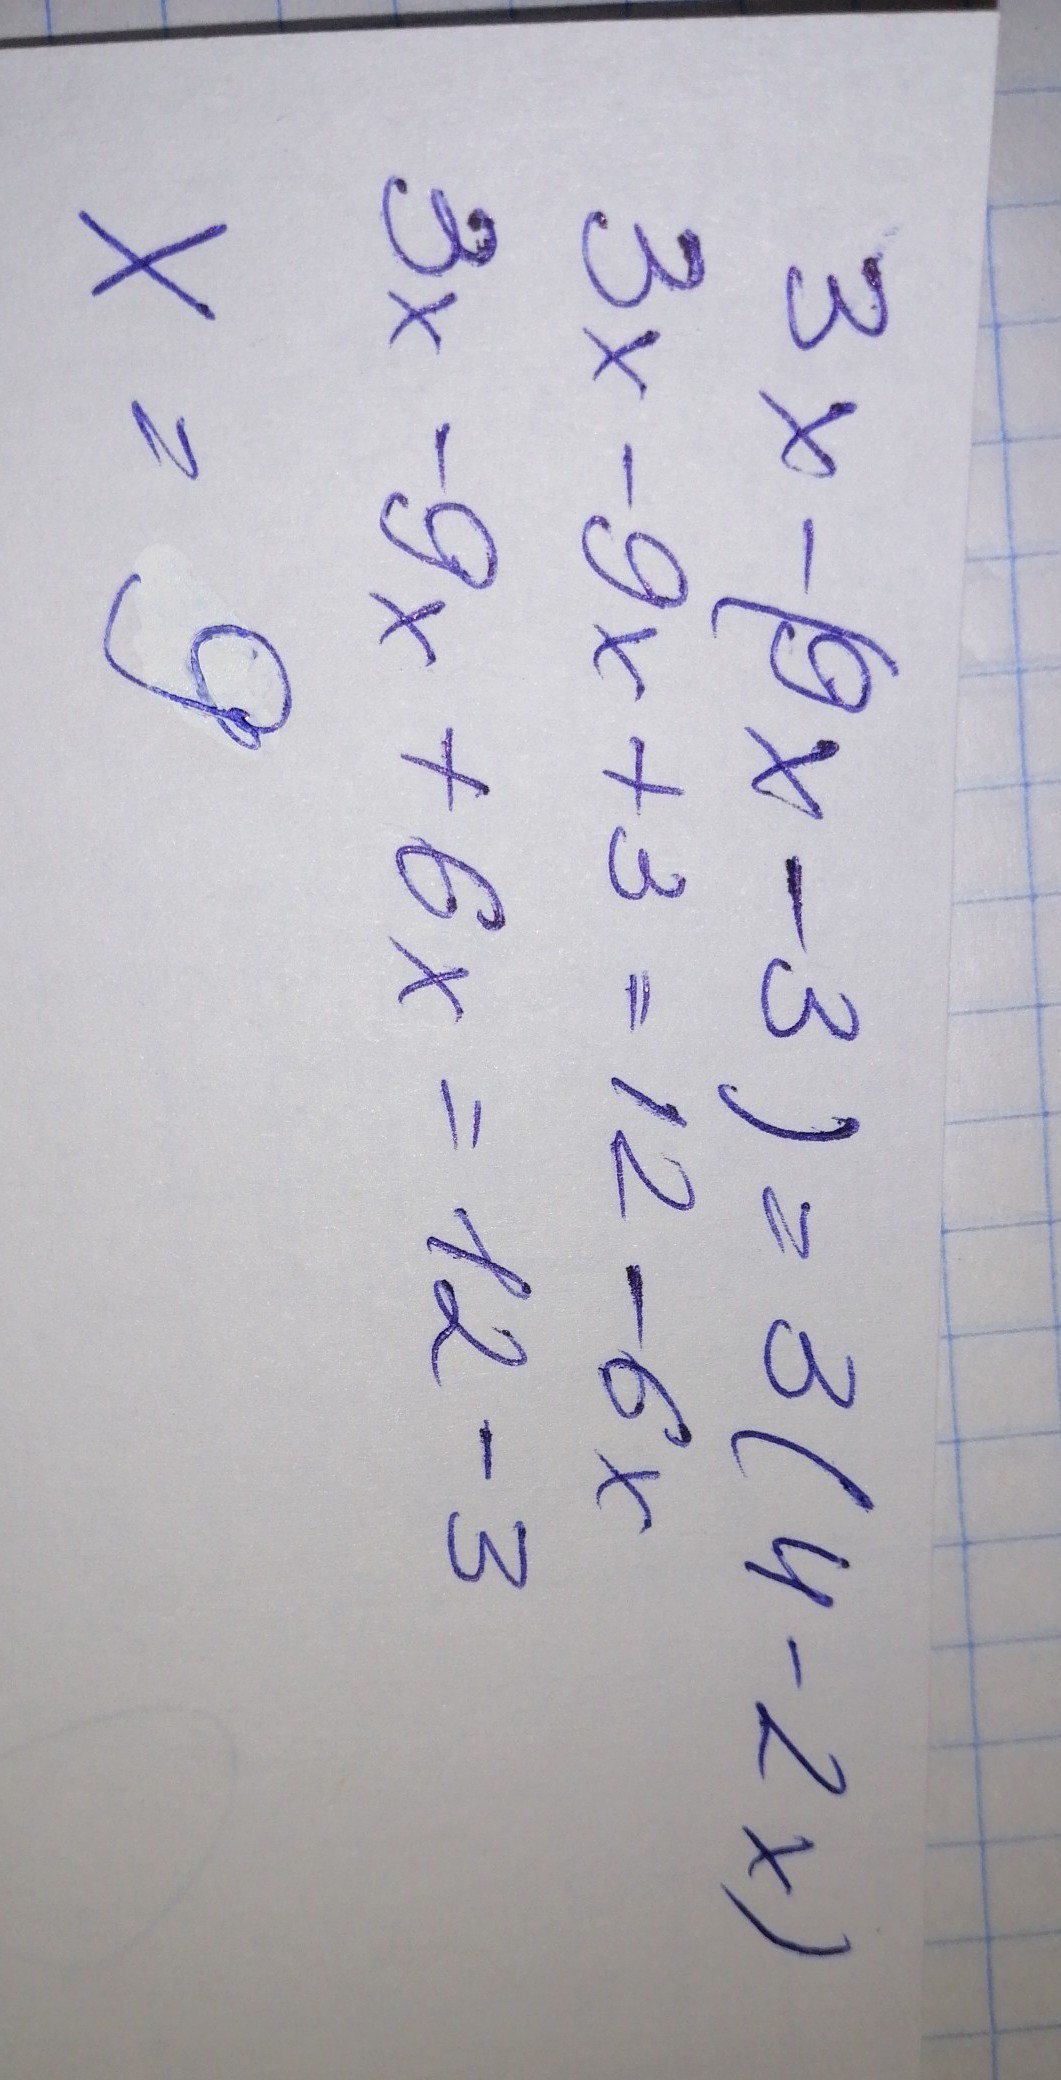 3x - (9x - 3) = 3(4 - 2x)
3x - 9x + 3 = 12 - 6x
3x - 9x + 6x = 12 - 3
x = 9